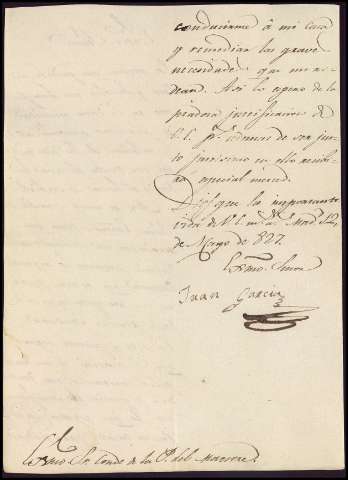 conducirme á mi casa
y remediar las grave
necesidades que me ro
dean. Así lo espero de la
piadosa justificacion de
V.E. pr. ademas de ser jus
to
especial merced.
Dios gue la importante
vida de V.E. ms. as. Madrid 12
de Mayo de 827.
Exmo. Señor
Juan Garcia
Exmo. Sr. Conde de la Pa. del Maestre.